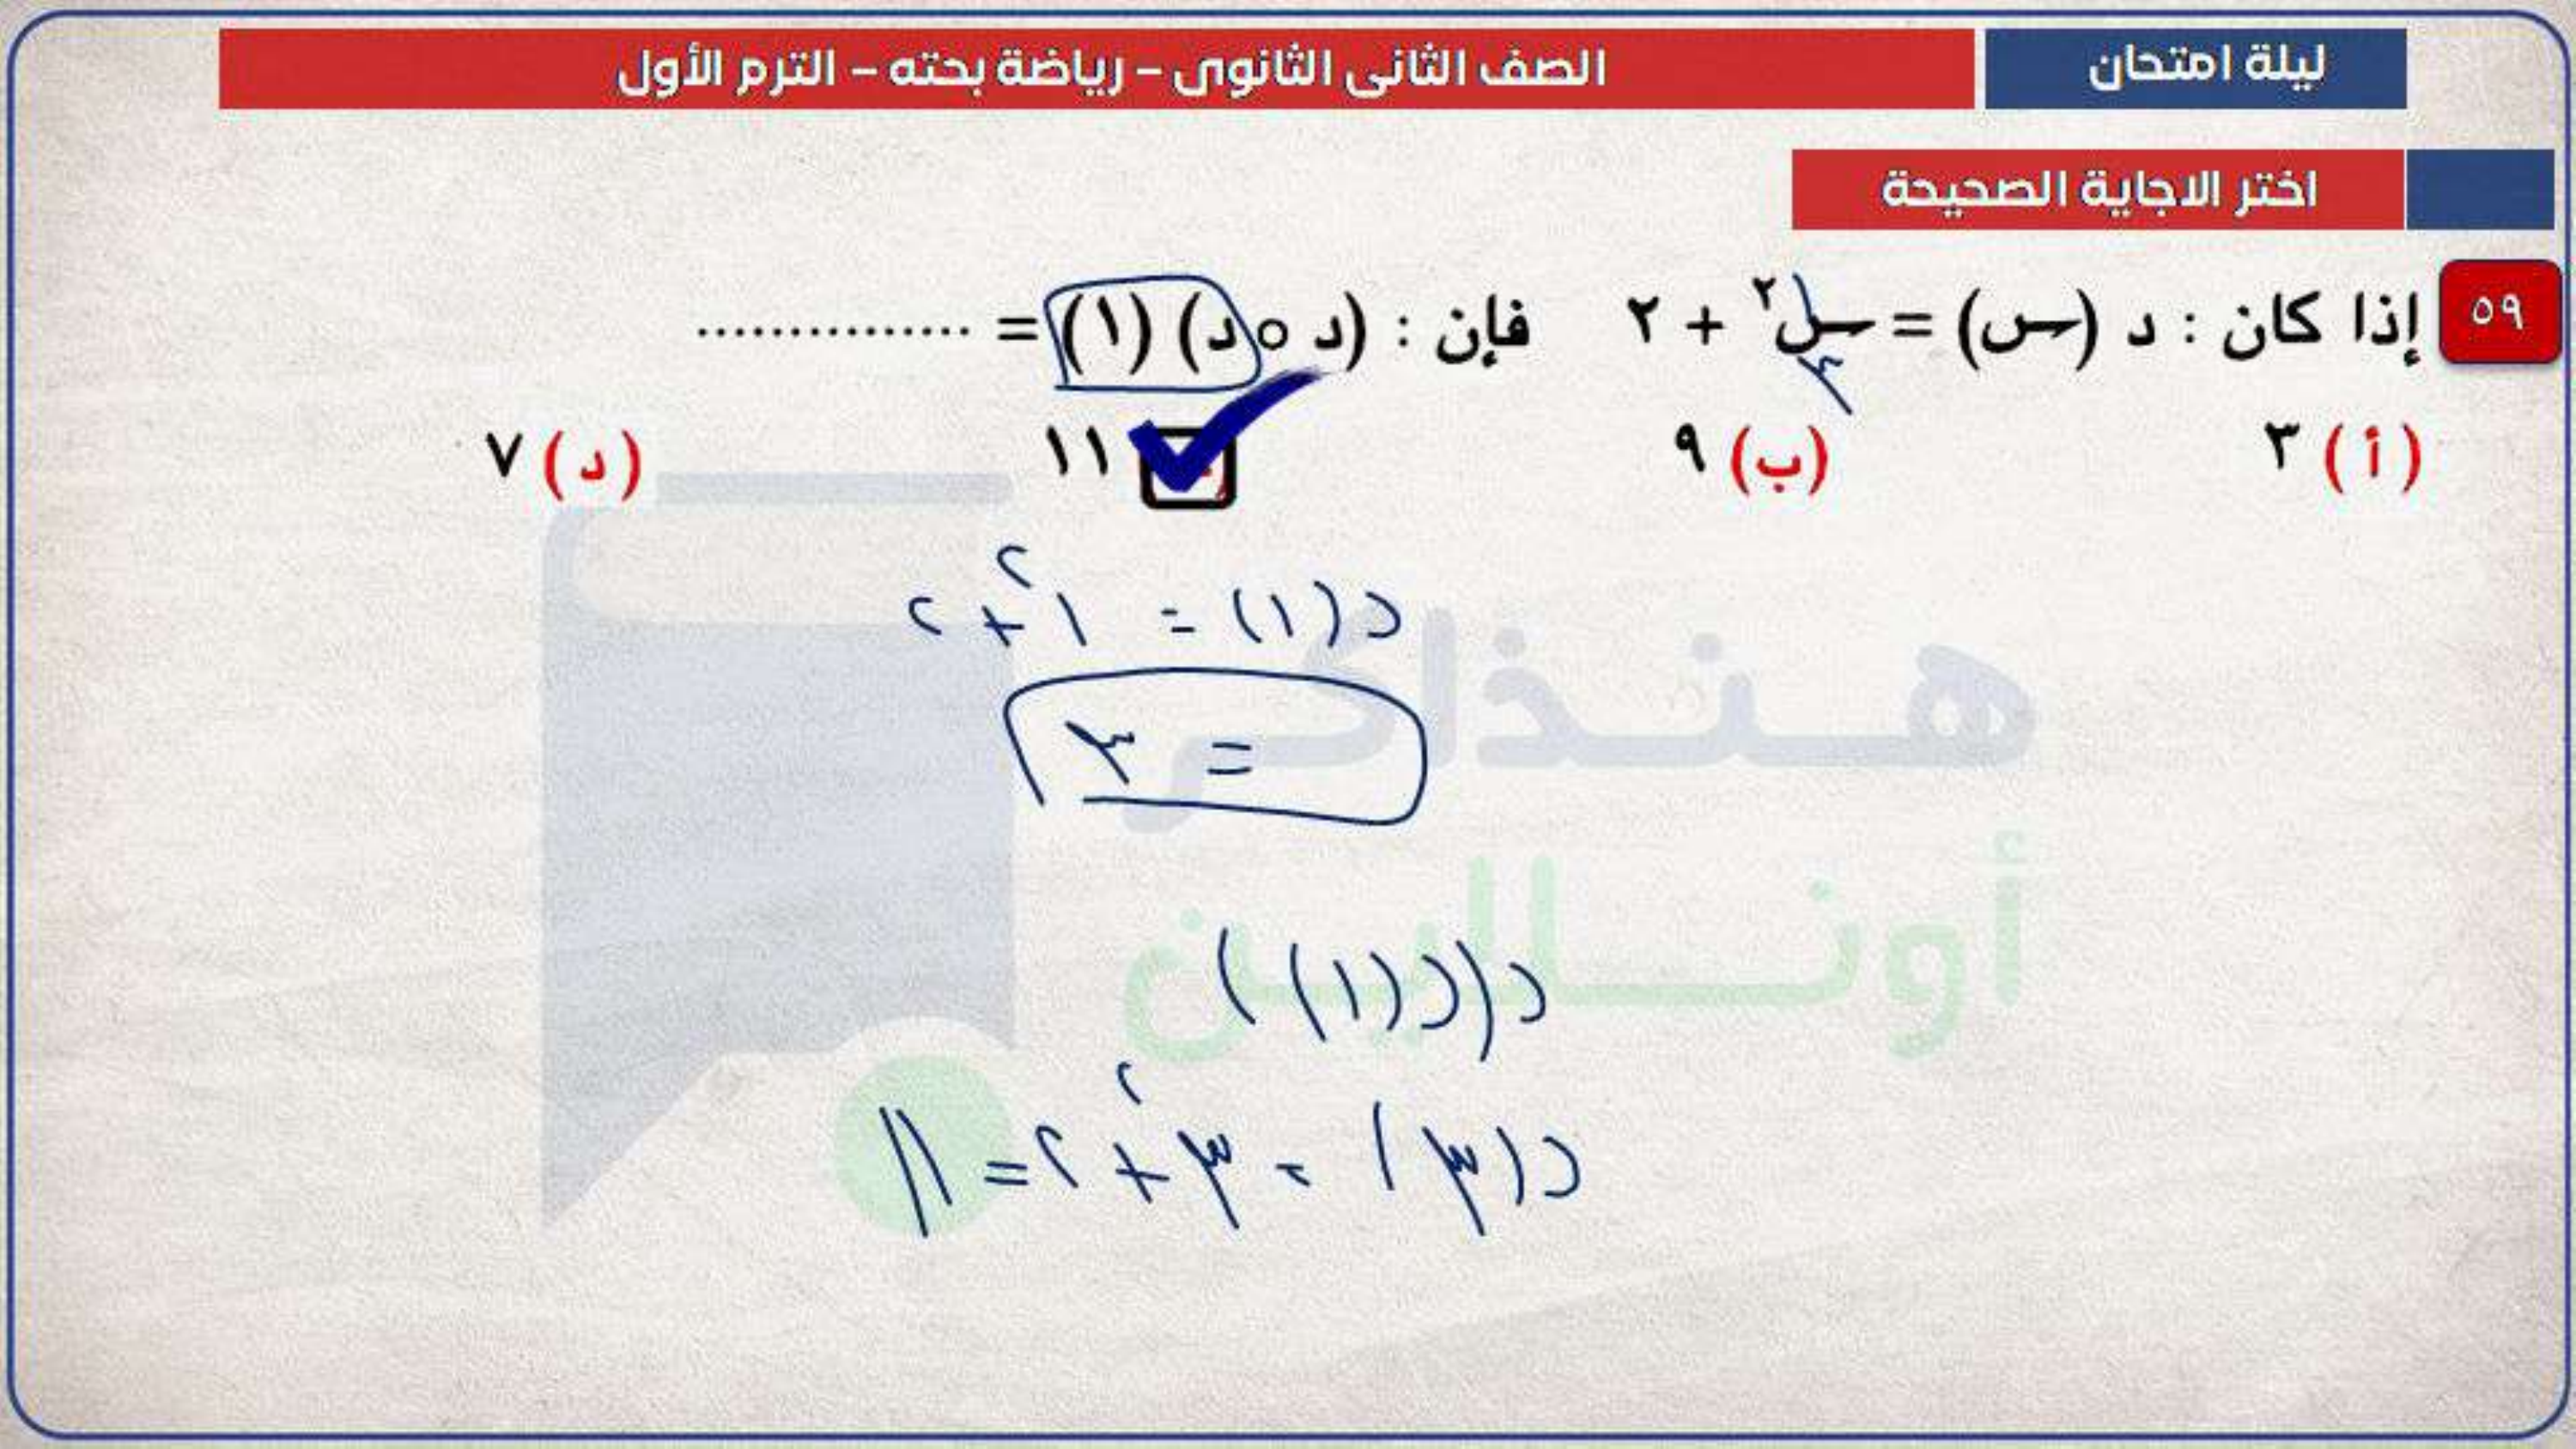 ليلة امتحان
الصف الثانى الثانوى – رياضة بحته – الترم الأول
اختر الاجاية الصحيحة
٥٩ إذا كان : د (س) = س٢ + ٢ فإن : (د ० د) (١) = ...............
٣
(أ) ٣ (ب) ٩ ١١ (د) ٧
د(١) = ١٢ + ٢
= ٣
د(د(١))
د(٣) = ٣٢ + ٢ = ١١
هـنـذاكر
أونـــالاين